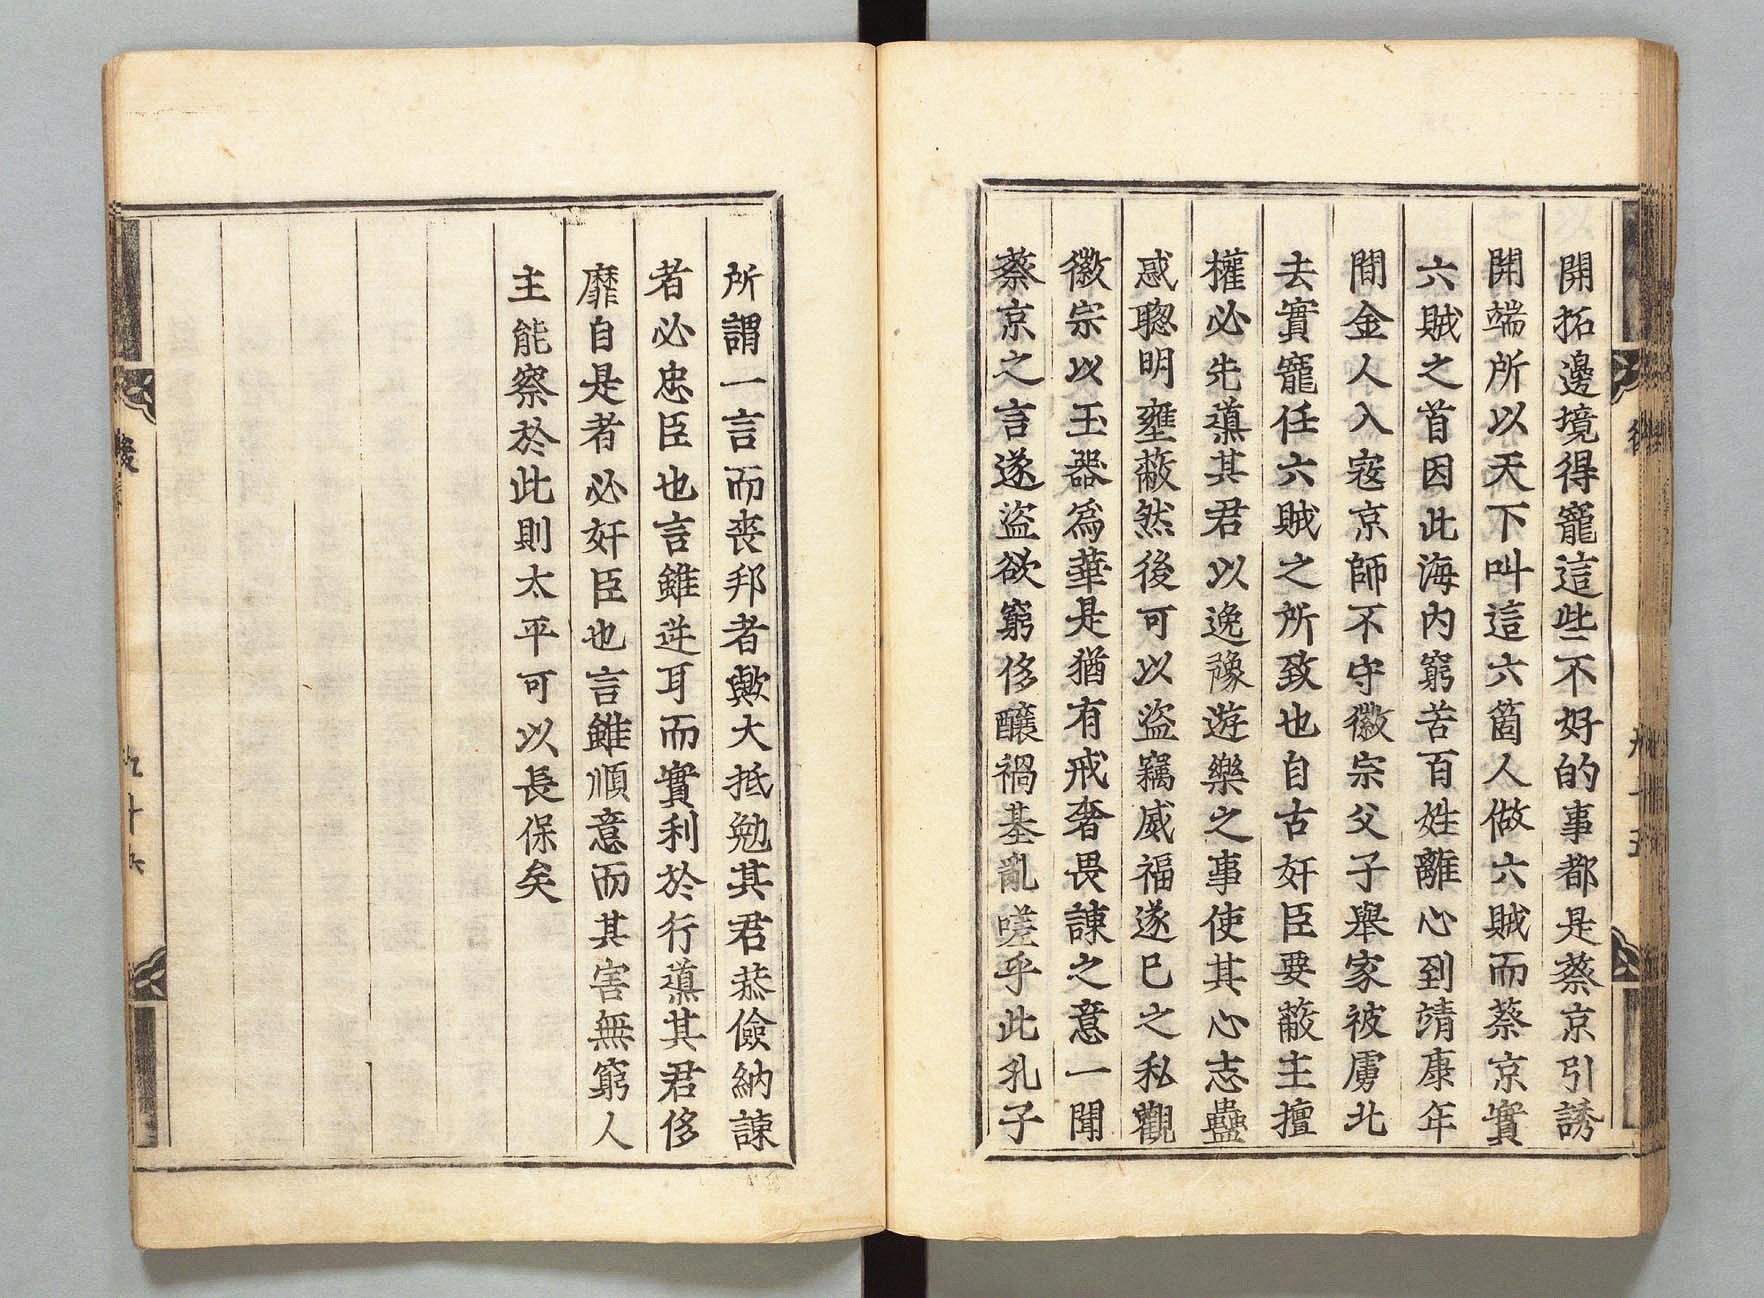 開拓邊境得寵這些不好的事都是蔡京引誘
開端所以天下叫這六箇人做六賊而蔡京實
六賊之首因此海內窮苦百姓離心到靖康年
間金人入寇京師不守徽宗父子舉家被虜北
去實寵任六賊之所致也自古奸臣要蔽主擅
權必先導其君以逸豫遊樂之事使其心志蠱
惑聰明壅蔽然後可以盜竊威福遂已之私觀
徽宗以玉器為華是猶有戒奢畏諫之意一聞
蔡京之言遂盜欲窮侈釀禍基亂嗟乎此孔子
所謂一言而喪邦者歟大抵勉其君恭儉納諫
者必忠臣也言雖逆耳而實利於行導其君侈
靡自是者必奸臣也言雖順意而其害無窮人
主能察於此則太平可以長保矣
後
九十六